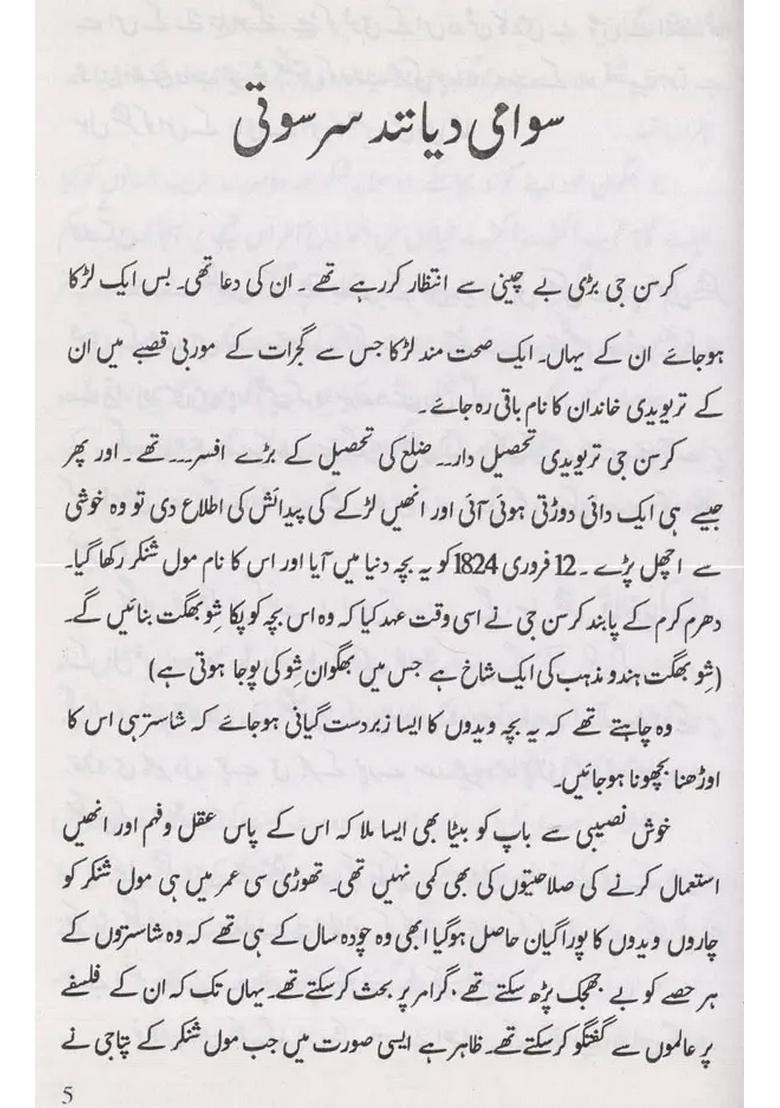 سوامی دیانند سرسوتی
کرسن جی بڑی بے چینی سے انتظار کررہے تھے ۔ ان کی دعا تھی۔ بس ایک لڑکا
ہوجائے ان کے یہاں۔ ایک صحت مند لڑکا جس سے گجرات کے موربی قصبے میں ان
کے تریویدی خاندان کا نام باقی رہ جائے۔
کرسن جی تریویدی تحصیل دار۔۔ ضلع کی تحصیل کے بڑے افسر۔۔۔ تھے ۔ اور پھر
جیسے ہی ایک دائی دوڑتی ہوئی آئی اور انھیں لڑکے کی پیدائش کی اطلاع دی تو وہ خوشی
سے اچھل پڑے ۔ 12 فروری 1824 کو یہ بچہ دنیا میں آیا اور اس کا نام مول شنکر رکھا گیا۔
دھرم کرم کے پابند کرسن جی نے اسی وقت عہد کیا کہ وہ اس بچہ کو پکا شِو بھگت بنائیں گے۔
(شِو بھگت ہندو مذہب کی ایک شاخ ہے جس میں بھگوان شِو کی پوجا ہوتی ہے)
وہ چاہتے تھے کہ یہ بچہ ویدوں کا ایسا زبردست گیانی ہوجائے کہ شاستر ہی اس کا
اوڑھنا بچھونا ہوجائیں۔
خوش نصیبی سے باپ کو بیٹا بھی ایسا ملا کہ اس کے پاس عقل و فہم اور انھیں
استعمال کرنے کی صلاحیتوں کی بھی کمی نہیں تھی۔ تھوڑی سی عمر میں ہی مول شنکر کو
چاروں ویدوں کا پورا گیان حاصل ہوگیا ابھی وہ چودہ سال کے ہی تھے کہ وہ شاستروں کے
ہر حصے کو بے جھجک پڑھ سکتے تھے، گرامر پر بحث کرسکتے تھے۔ یہاں تک کہ ان کے فلسفے
پر عالموں سے گفتگو کرسکتے تھے۔ ظاہر ہے ایسی صورت میں جب مول شنکر کے پتاجی نے
5